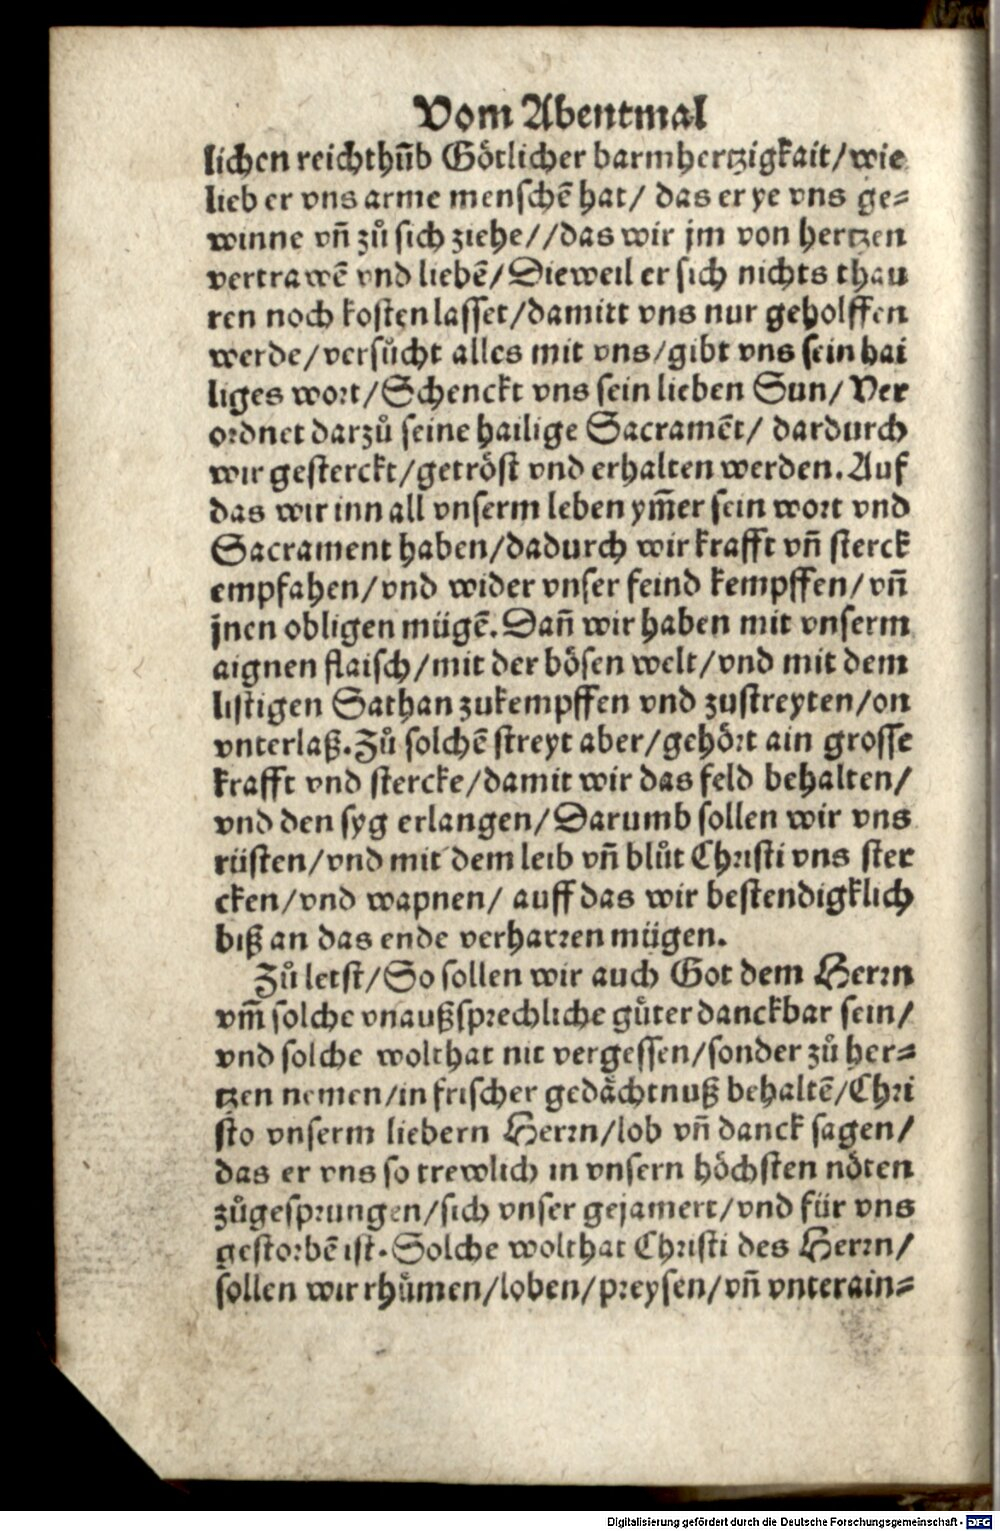 Vom Abentmal
lichen reichthũb Götlicher barmhertzigkait/wie
lieb er vns arme menschẽ hat/ das er ye vns ge⸗
winne vñ zů sich ziehe//das wir jm von hertzen
vertrawẽ vnd liebẽ/Dieweil er sich nichts thau
ren noch kosten lasset/damitt vns nur geholffen
werde/versůcht alles mit vns/gibt vns sein hai
liges wort/Schenckt vns sein lieben Sun/ Ver
ordnet darzů seine hailige Sacramẽt/ dardurch
wir gesterckt/getröst vnd erhalten werden.Auf
das wir inn all vnserm leben ym̃er sein wort vnd
Sacrament haben/dadurch wir krafft vñ sterck
empfahen/vnd wider vnser feind kempffen/vñ
jnen obligen mügẽ.Dañ wir haben mit vnserm
aignen flaisch/mit der bösen welt/vnd mit dem
listigen Sathan zukempffen vnd zustreyten/on
vnterlaß.Zů solchẽ streyt aber/gehört ain grosse
krafft vnd stercke/damit wir das feld behalten/
vnd den syg erlangen/Darumb sollen wir vns
rüsten/vnd mit dem leib vñ blůt Christi vns ster
cken/vnd wapnen/ auff das wir bestendigklich
biß an das ende verharren mügen.
Zů letst/So sollen wir auch Got dem Herrn
vm̃ solche vnaußsprechliche gůter danckbar sein/
vnd solche wolthat nit vergessen/sonder zů her⸗
tzen nemen/in frischer gedächtnuß behaltẽ/Chri
sto vnserm liebern Herrn/lob vñ danck sagen/
das er vns so trewlich in vnsern höchsten nöten
zůgesprungen/sich vnser gejamert/vnd für vns
gestorbẽ ist.Solche wolthat Christi des Herrn/
sollen wir rhůmen/loben/preysen/vñ vnterain⸗
Digitalisierung gefördert durch die Deutsche Forschungsgemeinschaft - DFG